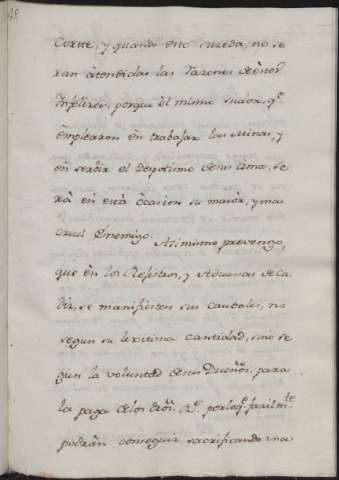 48
Corte, y quando esto suceda, no se
ran àtendidas las Razones de èstos
Infelices, porque èl mismo sudor, q.e
èmplearon èn trabajar las Minas, y
èn servir el Despotismo de sus Amos, se
rà èn està òcasion su maior, y mas
cruel Enemigo. Asimismo prevengo,
que èn los Rejistros, y Aduanas de Ca
diz, se manifiesten sus caudales, no
segun su lexitima cantidad, sino se
gun la voluntad de sus Dueños, para
la paga de los dros. R.s por lo q.e facilm.te
podràn conseguir, sacrificando una